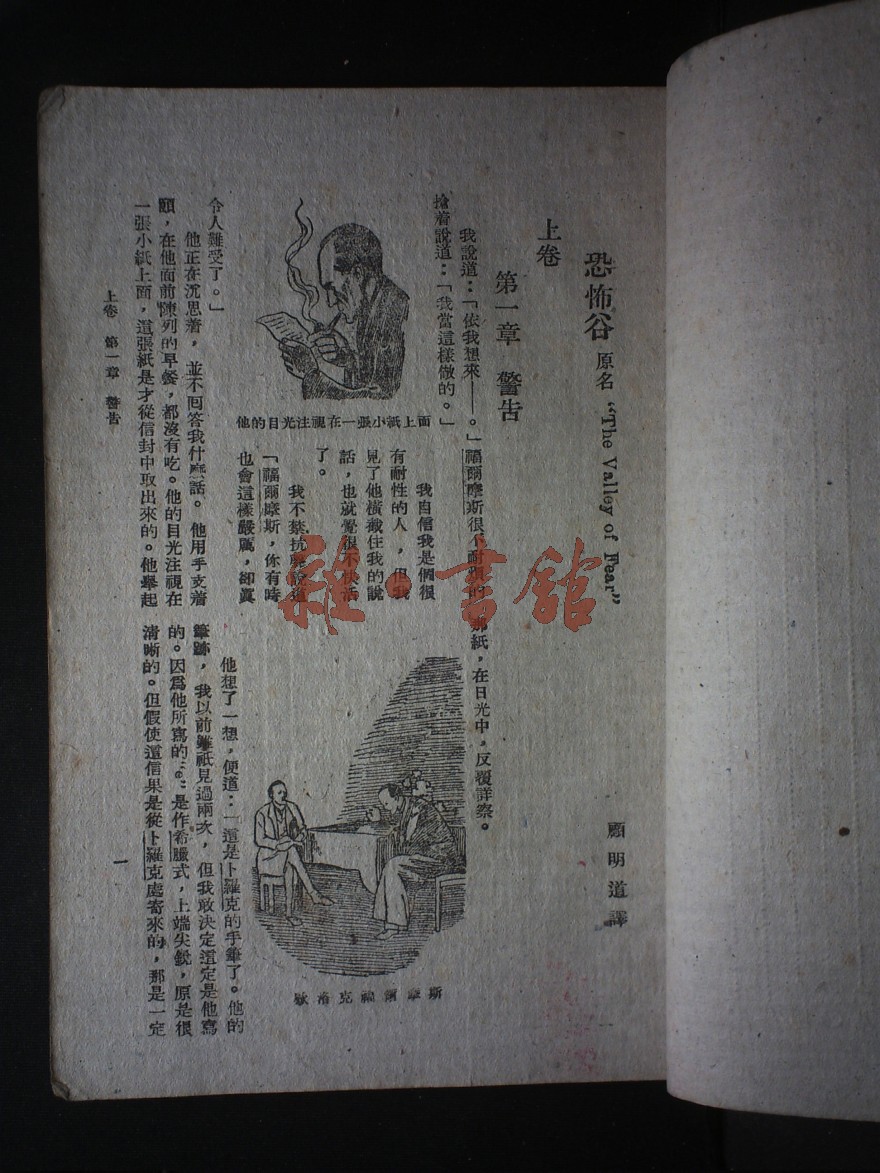 恐怖谷 原名 "The Valley of Fear"
顧明道譯
上卷
第一章 警告
我說道：「依我想來——。」福爾摩斯很不耐煩的
搶着說道：「我當這樣做的。」
他的目光注視在一張小紙上面
我自信我是個很
有耐性的人，但我
見了他橫截住我的說
話，也就覺很不快活
了。
我不禁抗聲說道
「福爾摩斯，你有時
也會這樣嚴厲，卻真
令人難受了。」
他正在沉思着，並不回答我什麼話。他用手支着
頤，在他面前陳列的早餐，都沒有吃。他的目光注視在
一張小紙上面，這張紙是才從信封中取出來的。他舉起
那紙，在日光中，反覆詳察。
歇洛克福爾摩斯
他想了一想，便道：「這是卜羅克的手筆了。他的
筆跡，我以前雖祇見過兩次，但我敢決定這定是他寫
的。因爲他所寫的是作希臘式，上端尖銳，原是很
清晰的。但假使這信果是從卜羅克處寄來的，那是一定
上卷 第一章 警告
一
雜·書館